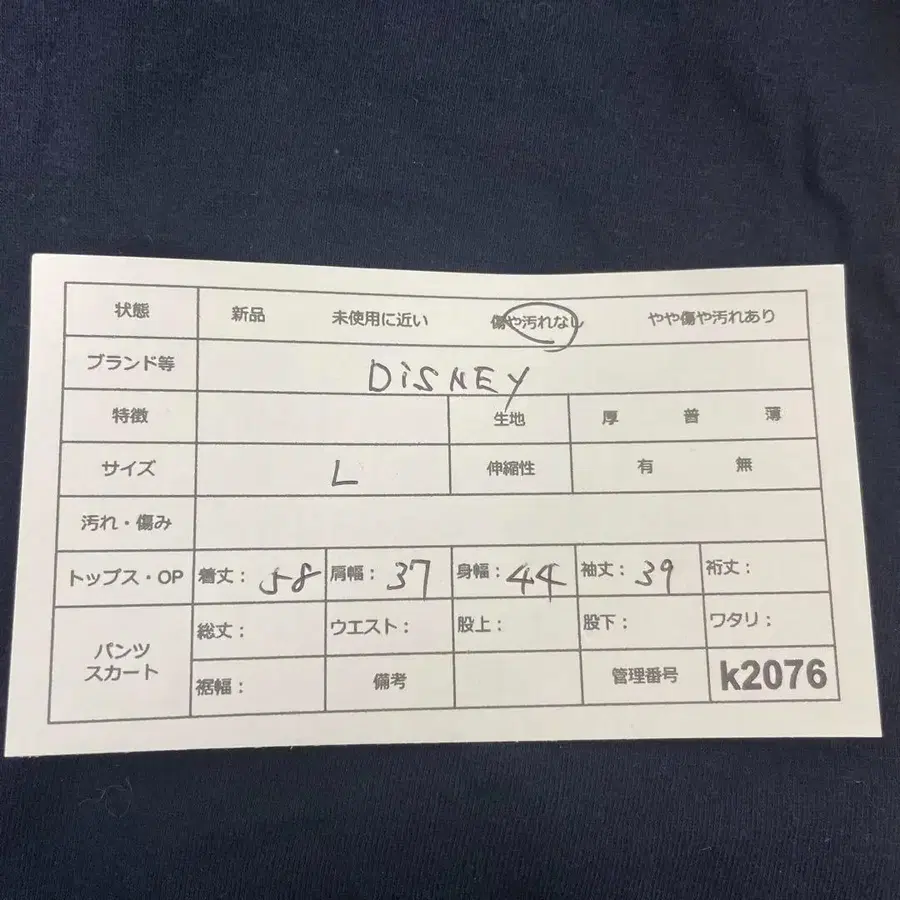 状態 新品 未使用に近い 傷や汚れなし やや傷や汚れあり
ブランド等 DiSNEY
特徴 生地 厚 普 薄
サイズ L 伸縮性 有 無
汚れ・傷み
トップス・OP 着丈: 58 肩幅: 37 身幅: 44 袖丈: 39 裄丈:
パンツ スカート 総丈: ウエスト: 股上: 股下: ワタリ:
裾幅: 備考 管理番号 k2076